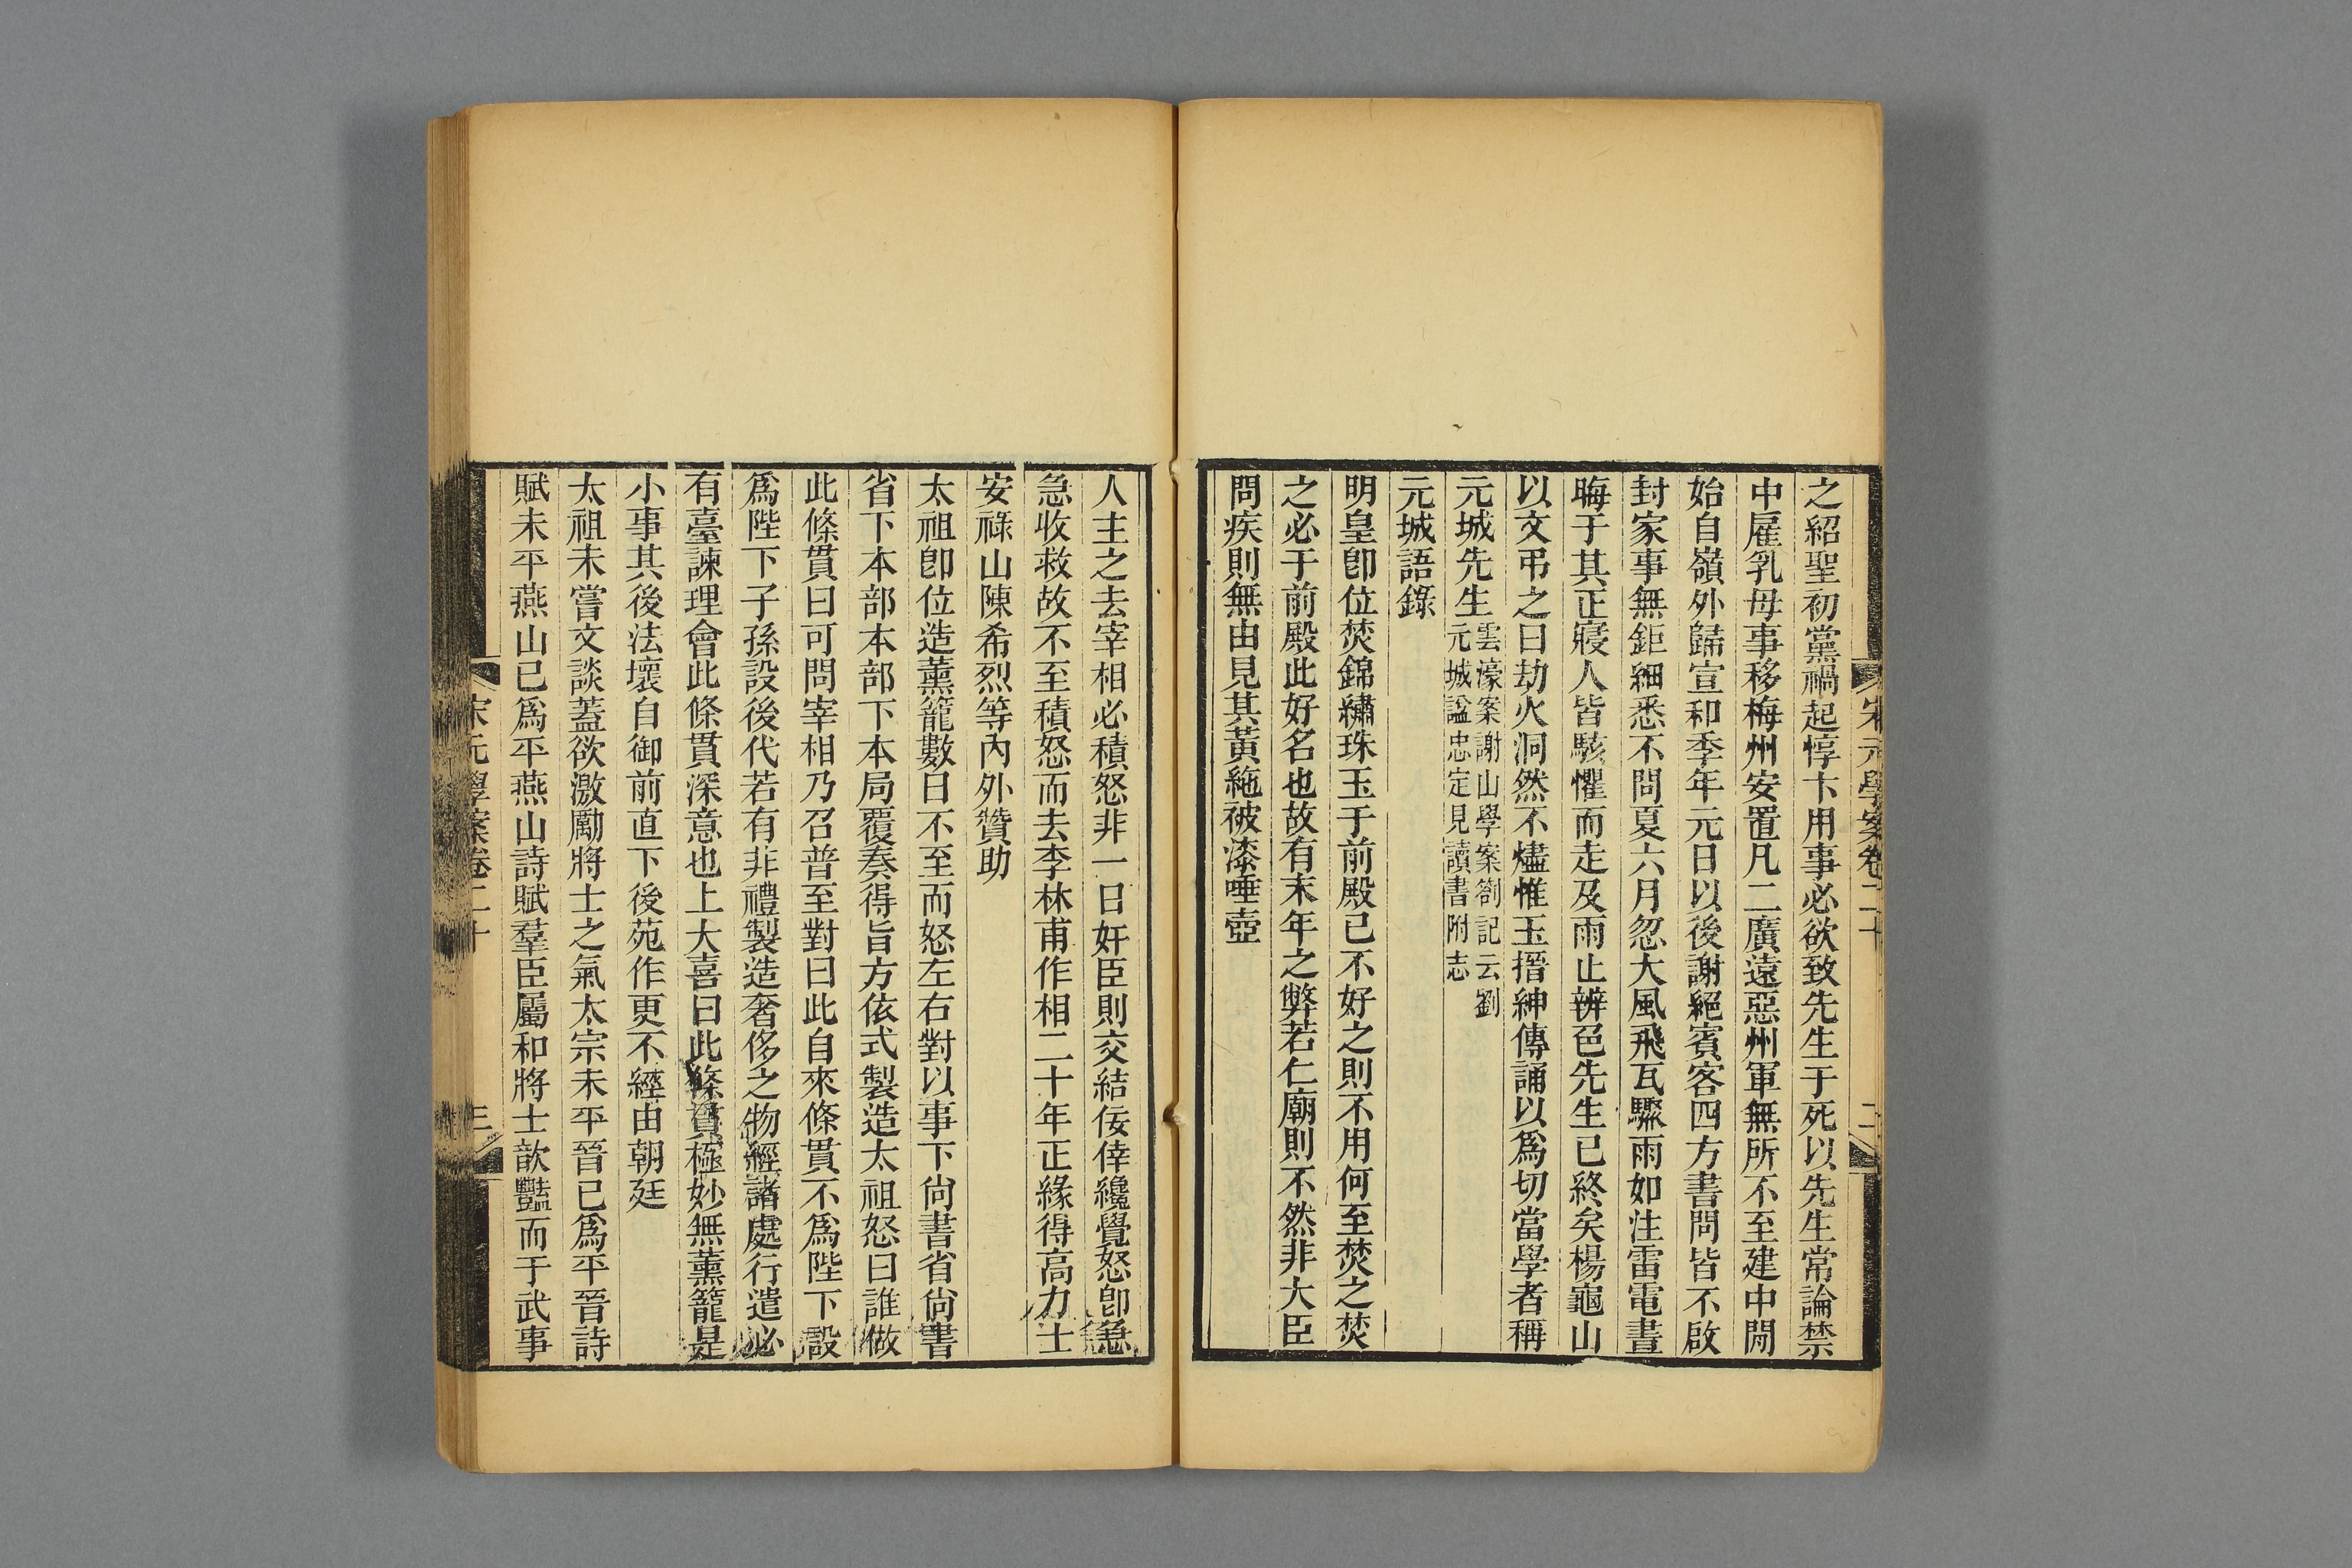 宋元學案卷二十
二
之紹聖初黨禍起惇卞用事必欲致先生于死以先生常論禁
中雇乳母事移梅州安置凡二廣遠惡州軍無所不至建中閒
始自嶺外歸宣和季年元日以後謝絕賓客四方書問皆不啟
封家事無鉅細悉不問夏六月忽大風飛瓦驟雨如注雷電晝
晦于其正寢人皆駭懼而走及雨止辨色先生已終矣楊龜山
以文弔之曰劫火洞然不燼惟玉搢紳傳誦以爲切當學者稱
元城先生
雲濠案謝山學案劄記云劉
元城諡忠定見讀書附志
元城語錄
明皇卽位焚錦繡珠玉于前殿已不好之則不用何至焚之焚
之必于前殿此好名也故有末年之弊若仁廟則不然非大臣
問疾則無由見其黃絁被漆唾壺
人主之去宰相必積怒非一日奸臣則交結佞倖纔覺怒卽急
急收救故不至積怒而去李林甫作相二十年正緣得高力士
安祿山陳希烈等內外贊助
太祖卽位造薰籠數日不至而怒左右對以事下尙書省尙書
省下本部本部下本局覆奏得旨方依式製造太祖怒曰誰做
此條貫曰可問宰相乃召普至對曰此自來條貫不爲陛下設
爲陛下子孫設後代若有非禮製造奢侈之物經諸處行遣必
有臺諫理會此條貫深意也上大喜曰此條貫極妙無薰籠是
小事其後法壞自御前直下後苑作更不經由朝廷
太祖未嘗文談蓋欲激勵將士之氣太宗未平晉已爲平晉詩
賦未平燕山已爲平燕山詩賦羣臣屬和將士歆豔而于武事
宋元學案卷二十
三